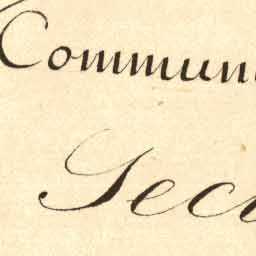 Commun
Sec